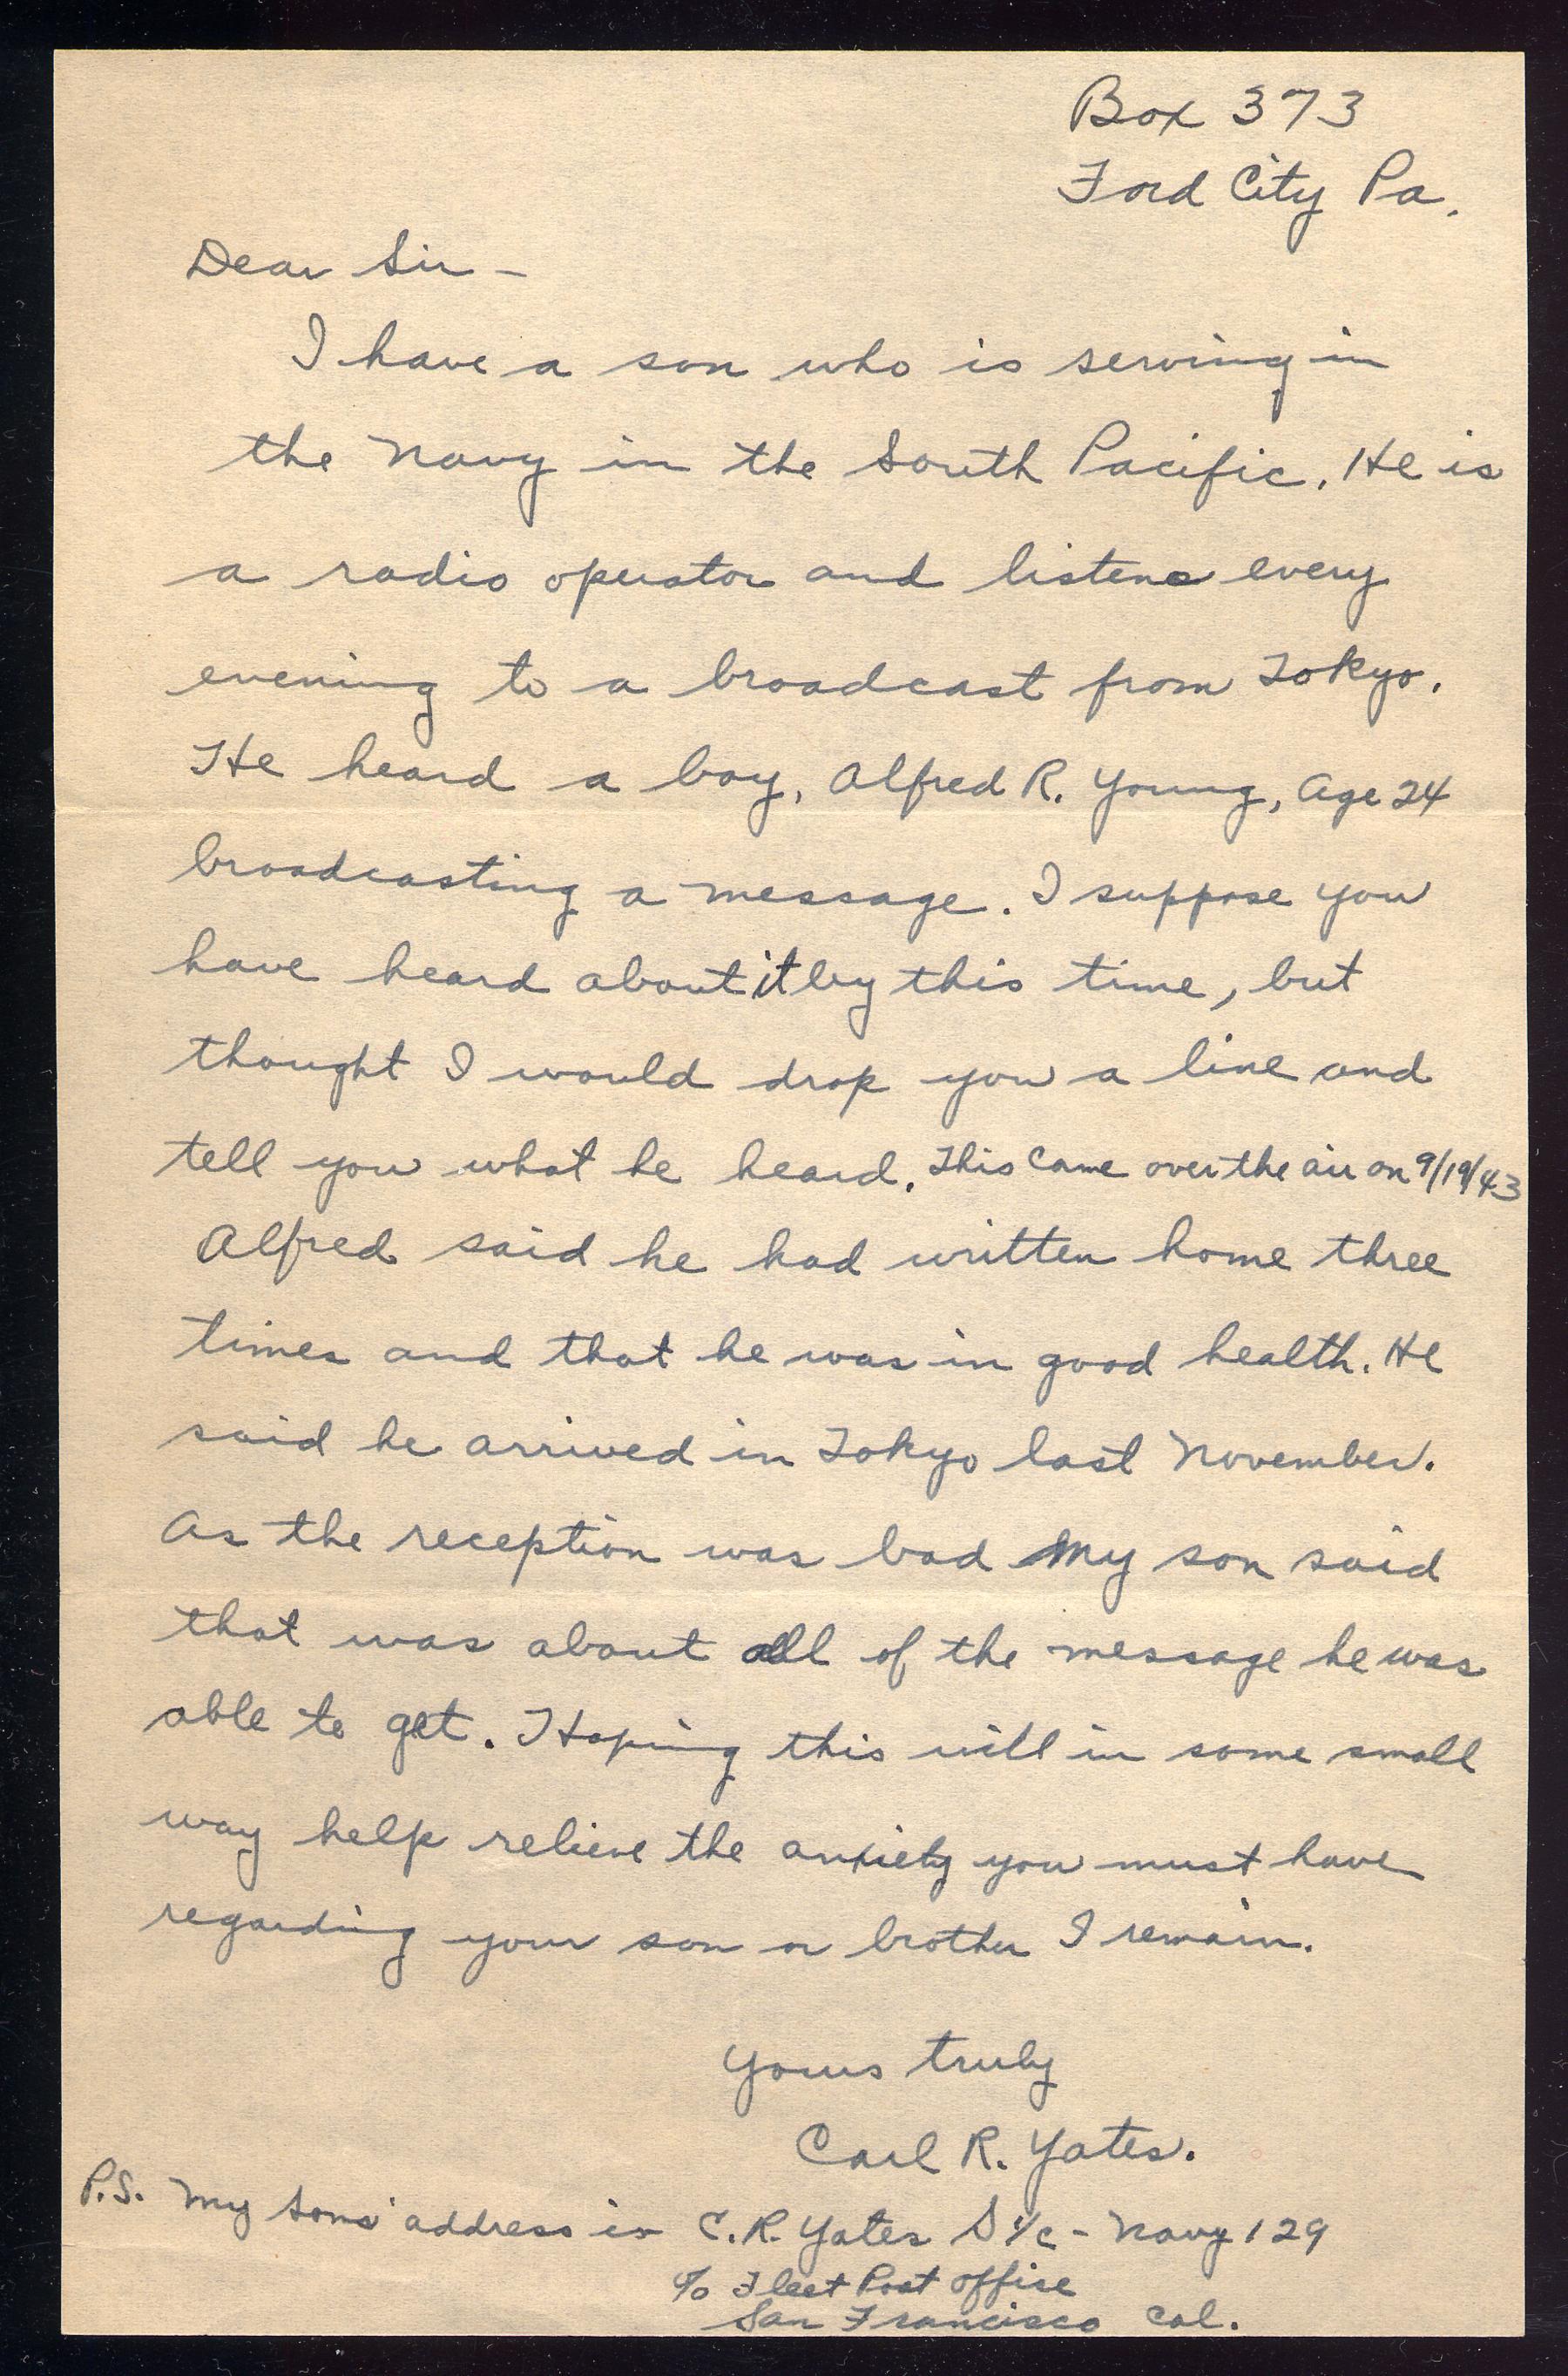 Box 373
Ford City Pa.
Dear Sir -
I have a son who is serving in
the Navy in the South Pacific. He is
a radio operator and listens every
evening to a broadcast from Tokyo.
He heard a boy, Alfred R. Young, Age 24
broadcasting a message. I suppose you
have heard about it by this time, but
thought I would drop you a line and
tell you what he heard. This came over the air on 9/19/43
Alfred said he had written home three
times and that he was in good health. He
said he arrived in Tokyo last November.
As the reception was bad my son said
that was about all of the message he was
able to get. Hoping this will in some small
way help relieve the anxiety you must have
regarding your son or brother I remain.
Yours truly
Carl R. Yates.
P.S. My Sons' address is C.R. Yates S 1/c - Navy 129
c/o Fleet Post Office
San Francisco Cal.